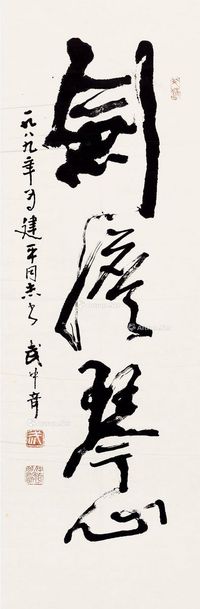 劍膽琴心
一九八九年为建平同志书 武中奇